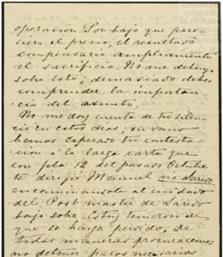 operacion. Por bajo que pare-
ciera el precio, el resultado
compensaria ampliamente
el sacrificio. No me detengo
sobre esto, demasiado debes
comprender la importan-
cia del asunto.
No me doy cuenta de tu silen-
cio en estos dias; en vano
hemos esperado tu contesta-
cion á la larga carta que
con fcha 12 del pasado Octubre
te dirigió Manuel
encaminandola al cuidado
del Post master de Laredo
bajo sobre. Estoy temeroso de
que se haya perdido. De
todas maneras procuraremos
no detener pasos necesarios